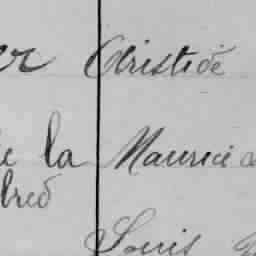 er Aristide
e la Maurice a
lred
Louis